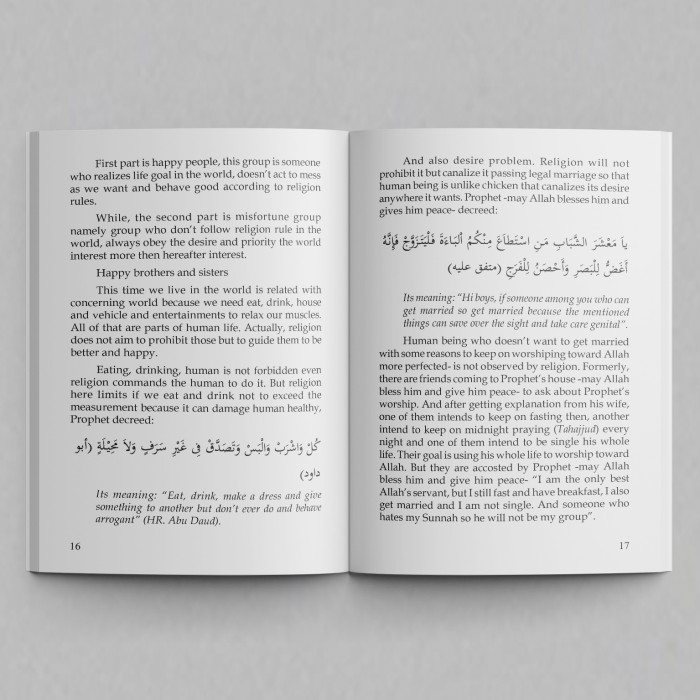 First part is happy people, this group is someone
who realizes life goal in the world, doesn't act to mess
as we want and behave good according to religion
rules.
While, the second part is misfortune group
namely group who don't follow religion rule in the
world, always obey the desire and priority the world
interest more then hereafter interest.
Happy brothers and sisters
This time we live in the world is related with
concerning world because we need eat, drink, house
and vehicle and entertainments to relax our muscles.
All of that are parts of human life. Actually, religion
does not aim to prohibit those but to guide them to be
better and happy.
Eating, drinking, human is not forbidden even
religion commands the human to do it. But religion
here limits if we eat and drink not to exceed the
measurement because it can damage human healthy,
Prophet decreed:
كُلْ وَاشْرَبْ وَالْبَسْ وَتَصَدَّقْ فِى غَيْرِ سَرَفٍ وَلاَ مَخِيْلَةٍ (أبو
داود)
Its meaning: "Eat, drink, make a dress and give
something to another but don't ever do and behave
arrogant" (HR. Abu Daud).
16
And also desire problem. Religion will not
prohibit it but canalize it passing legal marriage so that
human being is unlike chicken that canalizes its desire
anywhere it wants. Prophet -may Allah blesses him and
gives him peace- decreed:
ياَ مَعْشَرَ الشَّبَابِ مَنِ اسْتَطَاعَ مِنْكُمُ اْلبَاءَةَ فَلْيَتَزَوَّجْ فَإِنَّهُ
أَغَضُّ لِلْبَصَرِ وَأَحْصَنُ لِلْفَرَجِ (متفق عليه)
Its meaning: "Hi boys, if someone among you who can
get married so get married because the mentioned
things can save over the sight and take care genital".
Human being who doesn't want to get married
with some reasons to keep on worshiping toward Allah
more perfected- is not observed by religion. Formerly,
there are friends coming to Prophet's house -may Allah
bless him and give him peace- to ask about Prophet's
worship. And after getting explanation from his wife,
one of them intends to keep on fasting then, another
intend to keep on midnight praying (Tahajjud) every
night and one of them intend to be single his whole
life. Their goal is using his whole life to worship toward
Allah. But they are accosted by Prophet -may Allah
bless him and give him peace- "I am the only best
Allah's servant, but I still fast and have breakfast, I also
get married and I am not single. And someone who
hates my Sunnah so he will not be my group".
17